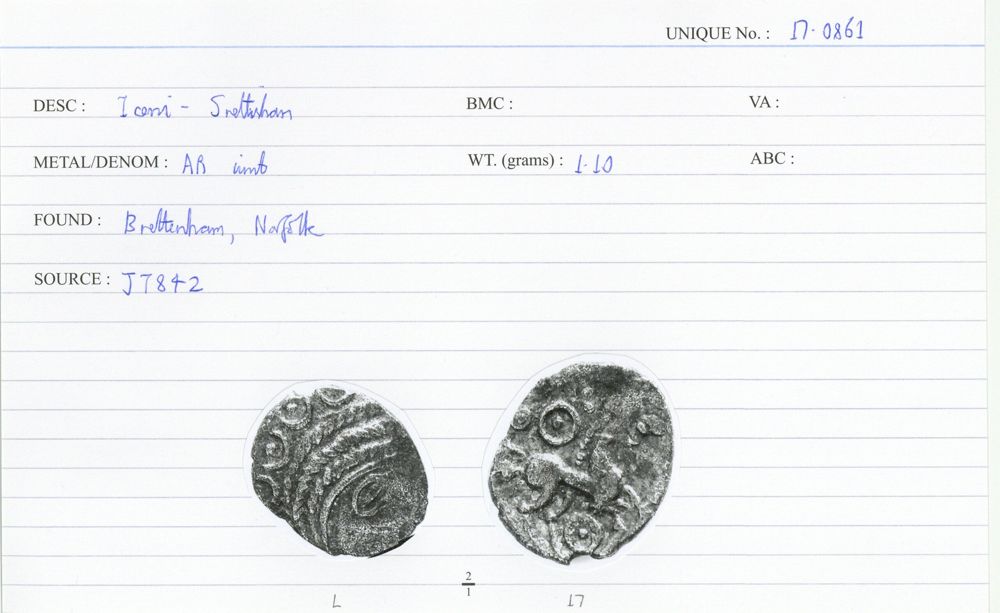 UNIQUE No. : 17·0861
DESC : Iceni - Snettisham BMC : VA :
METAL/DENOM : AR unit WT. (grams) : 1·10 ABC :
FOUND : Brettenham, Norfolk
SOURCE : JT842
2
1
L 17